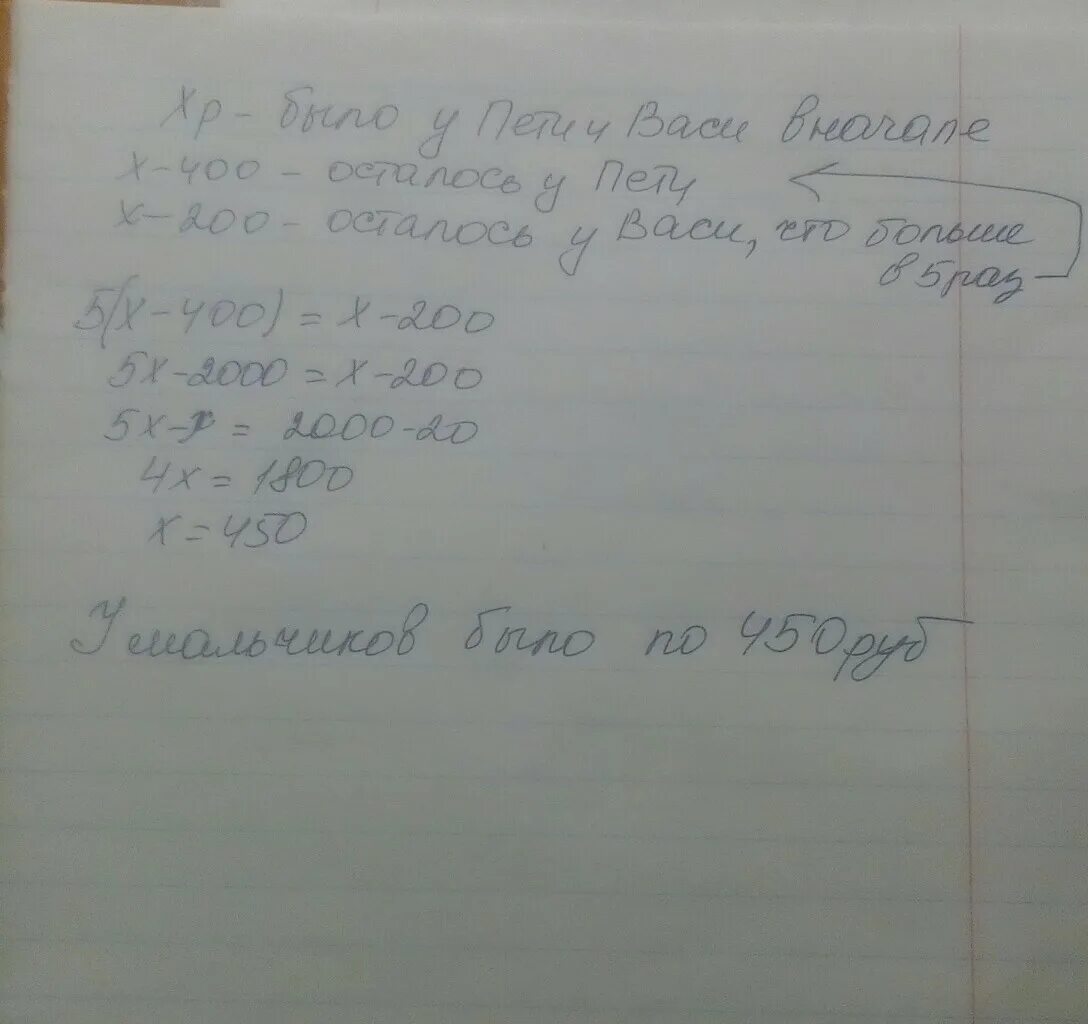 Хр - было у Пети и Васи вначале
х-400 - осталось у Пети
х-200 - осталось у Васи, что больше
в 5 раз
5(х-400) = х-200
5х-2000 = х-200
5х-х = 2000-20
4х = 1800
х = 450
У мальчиков было по 450 руб